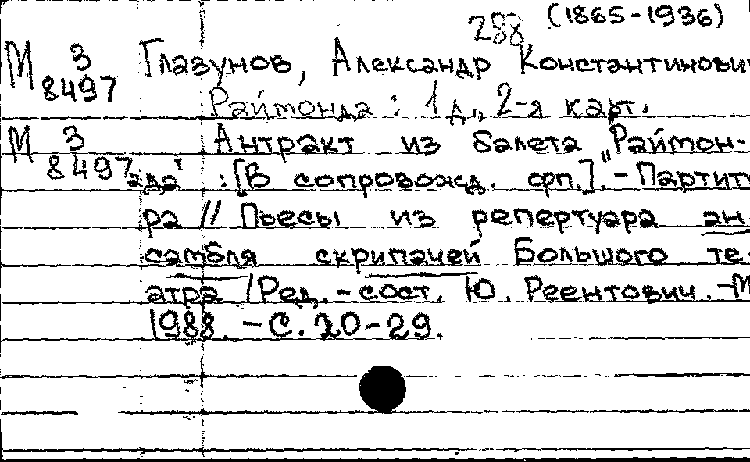 288 (1865-1936)
М 3 8497 Глазунов, Александр Константинович
Раймонда : 1 д., 2-я карт.
М 3 8497 Антракт из балета „Раймон-
да" : [В сопровожд. фп.]. - Партит
ра // Пьесы из репертуара ан
самбля скрипачей Большого те-
атра / Ред.-сост. Ю. Реентович. - М
1988. - С. 20-29.